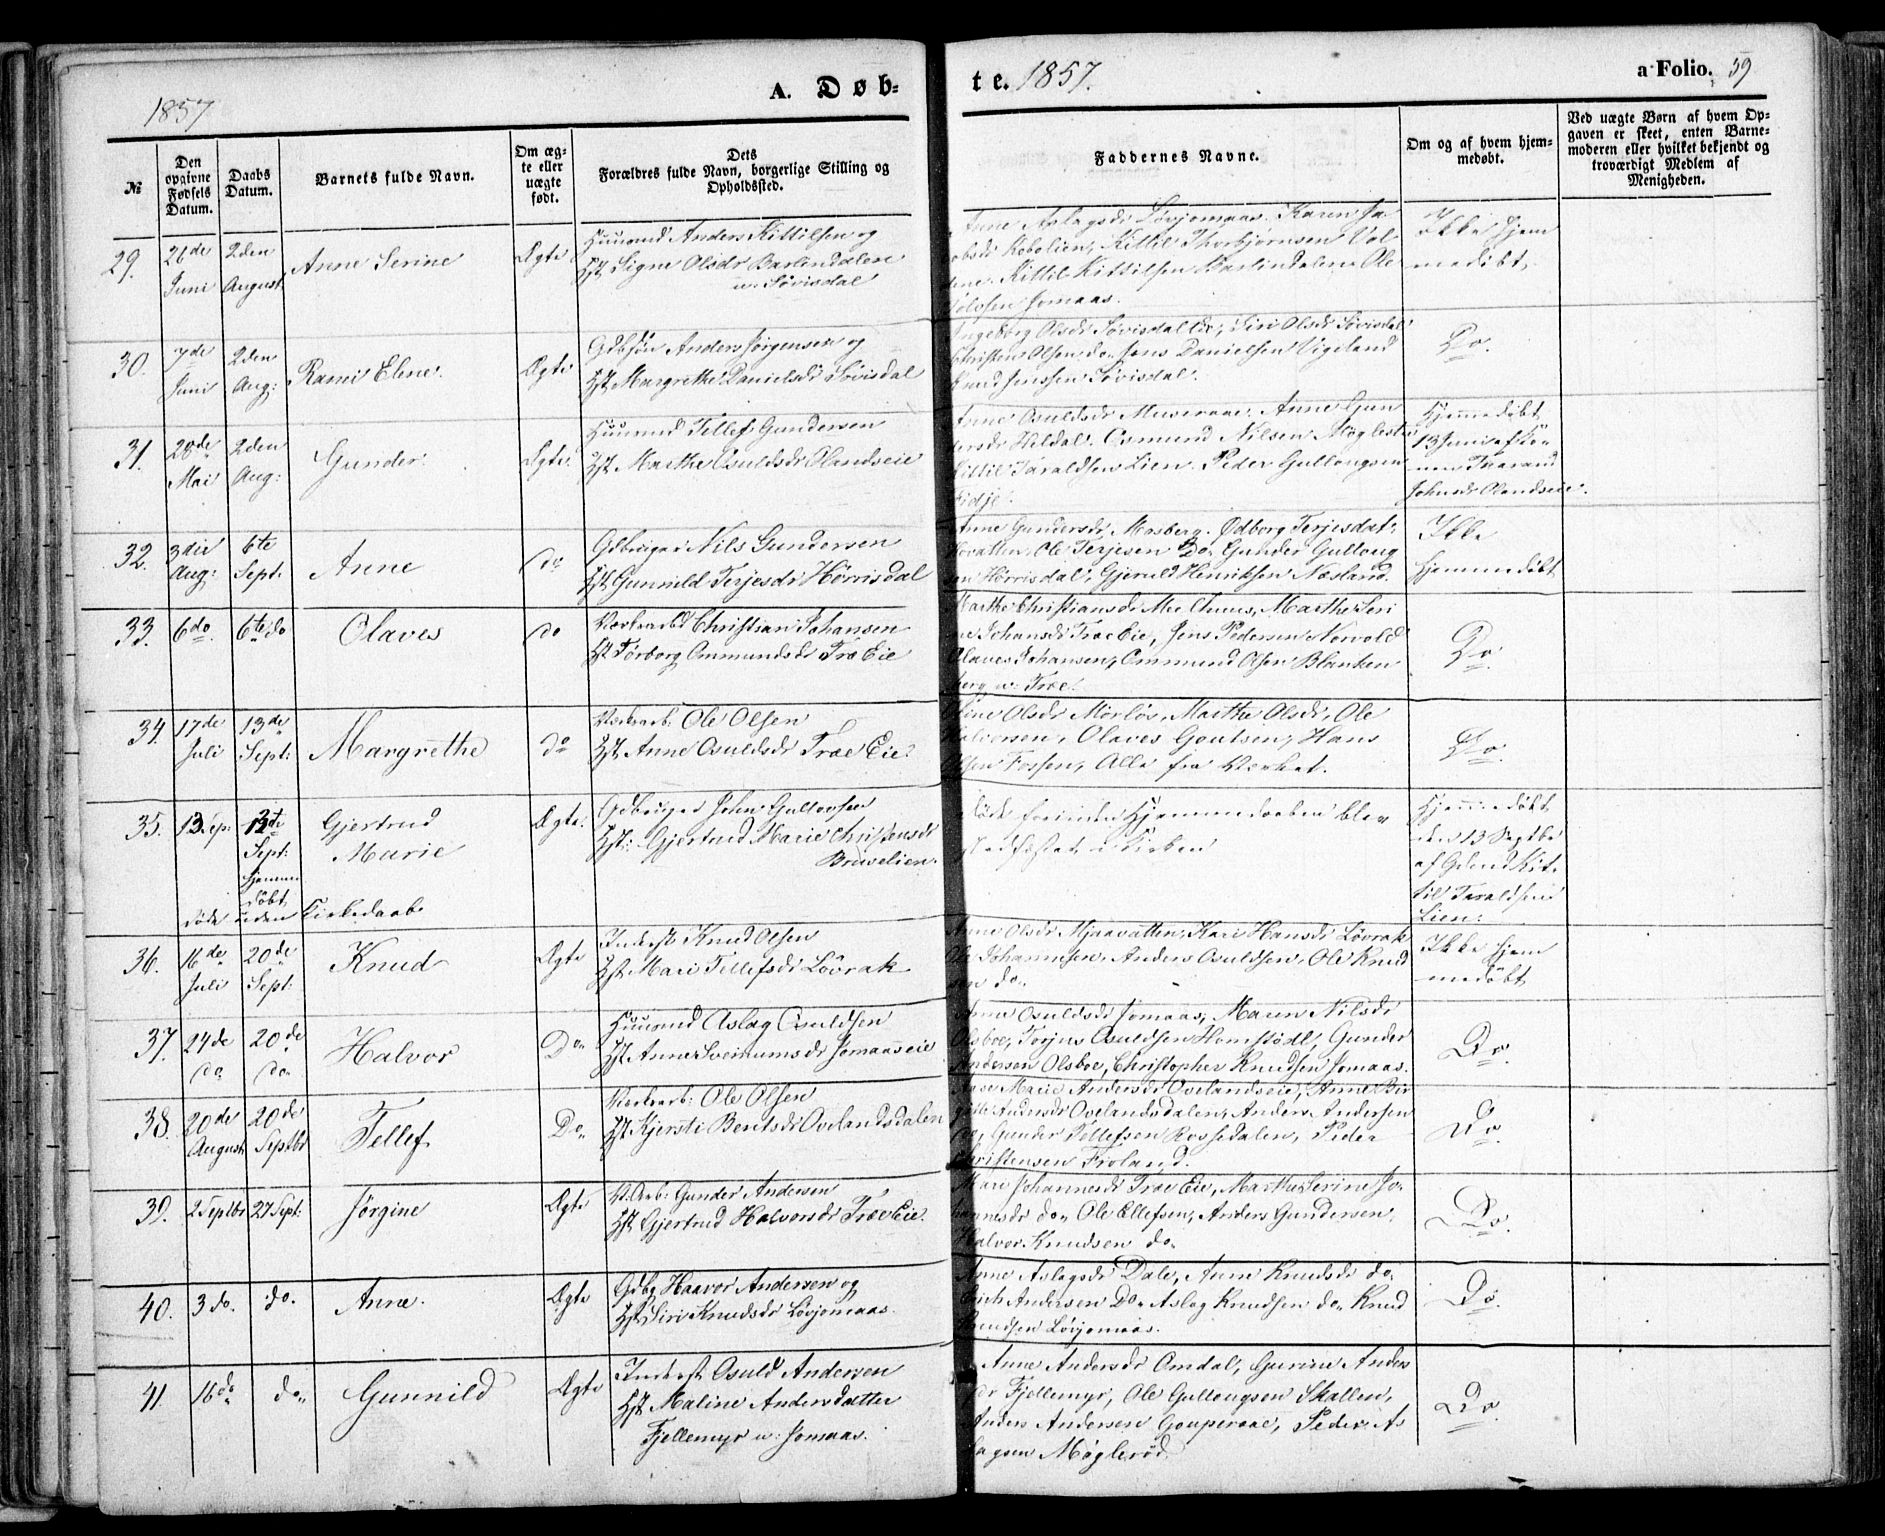 1857
A. Døb-
te. 1857.
a Folio. 59
№
Den opgivne Fødsels Datum.
Daabs Datum.
Barnets fulde Navn.
Om ægte eller uægte født.
Dets Forældres fulde Navn, borgerlige Stilling og Opholdssted.
Faddernes Navne.
Om og af hvem hjemmedøbt.
Ved uægte Børn af hvem Opgaven er skeet, enten Barnemoderen eller hvilket bekjendt og troværdigt Medlem af Menigheden.
29. 21de Juni
2den August
Anne Serine
Ægte
Huusmd Anders Kittilsen og
Hst Signe Olsdr Barlindalen
u. Søvisdal
Anne Aslagsdr Løvjomaas. Karen Ja
obsdr Kobolien, Kittil Thorbjørnsen Vol
Kittil Kittilsen Barlindalen Ole
Jomaas.
Ikke hjem
medøbt.
30. 7de Juni
2den Aug:
Rami Elene.
Ægte
Anders Jørgensen og
Hst Margrethe Danielsdr Søvisdal
Ingeborg Olsdr Søvisdal, Siri Olsdr Søvisdal
Christen Olsen do Jens Danielsen Vigeland
Knud Jensen Søvisdal.
Do.
31. 28de Mai
2den Aug:
Gunder
Ægte
Huusmd Tellef Gundersen
Hst Marthe Osuldsdr Olandseie
Anne Osuldsdr Anne Gun
dersdr Heldal. Osmund Nilsen Møglestu
Kittil Taraldsen Lien. Peder Gullougsen
Fidje.
Hjemmedøbt
13 Juni af Ko-
nen Taarand
Johnsdr Olandseie.
32. 3die Aug:
6te Sept:
Anne
do
Gdbruger Nils Gundersen
Hst Gunnild Terjesdr Hørrisdal
Anne Gundersdr Mosberg. Ødborg Terjesdat:
Hovatten, Ole Terjesen Do, Gunder Gulloug
sen Hørrisdal, Gjeruld Henriksen Næsland.
Ikke
hjemmedøbt
33. 6 do.
6te do
Olaves
do
Værksarbd Christian Johansen
Hst Torborg Ommundsdr Træ Eie
Marthe Christiansdr Marthe Seri
ne Johansdr Træ Eie, Jens Pedersen Norvold
Olaves Johansen, Ommund Olsen Blanken
berg u. Træe.
Do.
34. 17de Juli
13de Sept:
Margrethe
do
Værksarb. Ole Olsen
Hst Anne Osuldsdr Træe Eie.
Line Olsdr Mørløs, Marthe Olsdr, Ole
Halvorsen, Olaves Goutsen, Hans
Olsen Fossen, Alle fra Værket.
Do.
35. 13 Sep:
13de Sept: hjemmedøbt
Gjertrud
Marie
døde uden Kirkedaab
Ægte
Gdbruger John Gullovsen
Hst: Gjertrud Marie Christensdr
Bruvelien.
døde forinden Hjemmedaaben blev
stadfæstet i Kirken
Hjemmedøbt
den 13 Septbr
af Gdmd Kit-
til Taraldsen
Lien:
36. 16de Juli
20de Sept:
Knud
Ægte
Inderst Knud Olsen
Hst Mari Tellefsdr Løvrak
Anne Olsdr Mjaavatten, Kari Hansdr Løvrak
Ole Johannesen, Anders Osuldsen, Ole Knud
sen do.
Ikke hjem
medøbt
37. 24de do
20de do
Halvor
Do.
Huusmd Aslag Osuldsen
Hst Anne Sveinumsdr Jomaaseie
Anne Osuldsdr Jomaas, Maren Nilsdr
Olsboe, Torjus Osuldsen Homstødl, Gunder
Andersen Olsboe, Christopher Knudsen Jomaas.
Do
38. 20de August
20de Septbr
Tellef
Do.
Værksarb: Ole Olsen
Hst Kjersti Bentsdr Ovelandsdalen
Aase Marie Andersdr Ovelandseie, Anne Bir
gitte Andersdr Ovelandsdalen, Anders Andersen
do, Gunder Tellefsen Rossedalen, Peder
Christensen Froland.
Do
39. 2 Septbr
27 Sept:
Jørgine
Ægte
V. Arb: Gunder Andersen
Hst Gjertrud Halvorsdr Træ Eie.
Mari Johannesdr Træe Eie, Marthe Serine Jo-
hannesdr do. Ole Ellefsen, Anders Gundersen,
Halvor Knudsen do.
Do
40. 3 do.
do.
Anne.
Ægte
Gdbg Haavor Andersen og
Hst Siri Knudsdr Løvjomaas.
Anne Aslagsdr Dale, Anne Knudsdr do.
Erich Andersen Do. Aslag Knudsen do. Knud
Knudsen Løvjomaas.
Do
41. 16 do
do.
Gunnild
Ægte
Inderst Osuld Andersen
Hst Maline Andersdatter
Fjellemyr u: Jomaas.
Anne Andersdr Omdal, Gurine Anders
dr Fjellemyr, Ole Gullougsen Skallen,
Anders Andersen Gouperaae, Peder As
lagsen Møglerød
Do